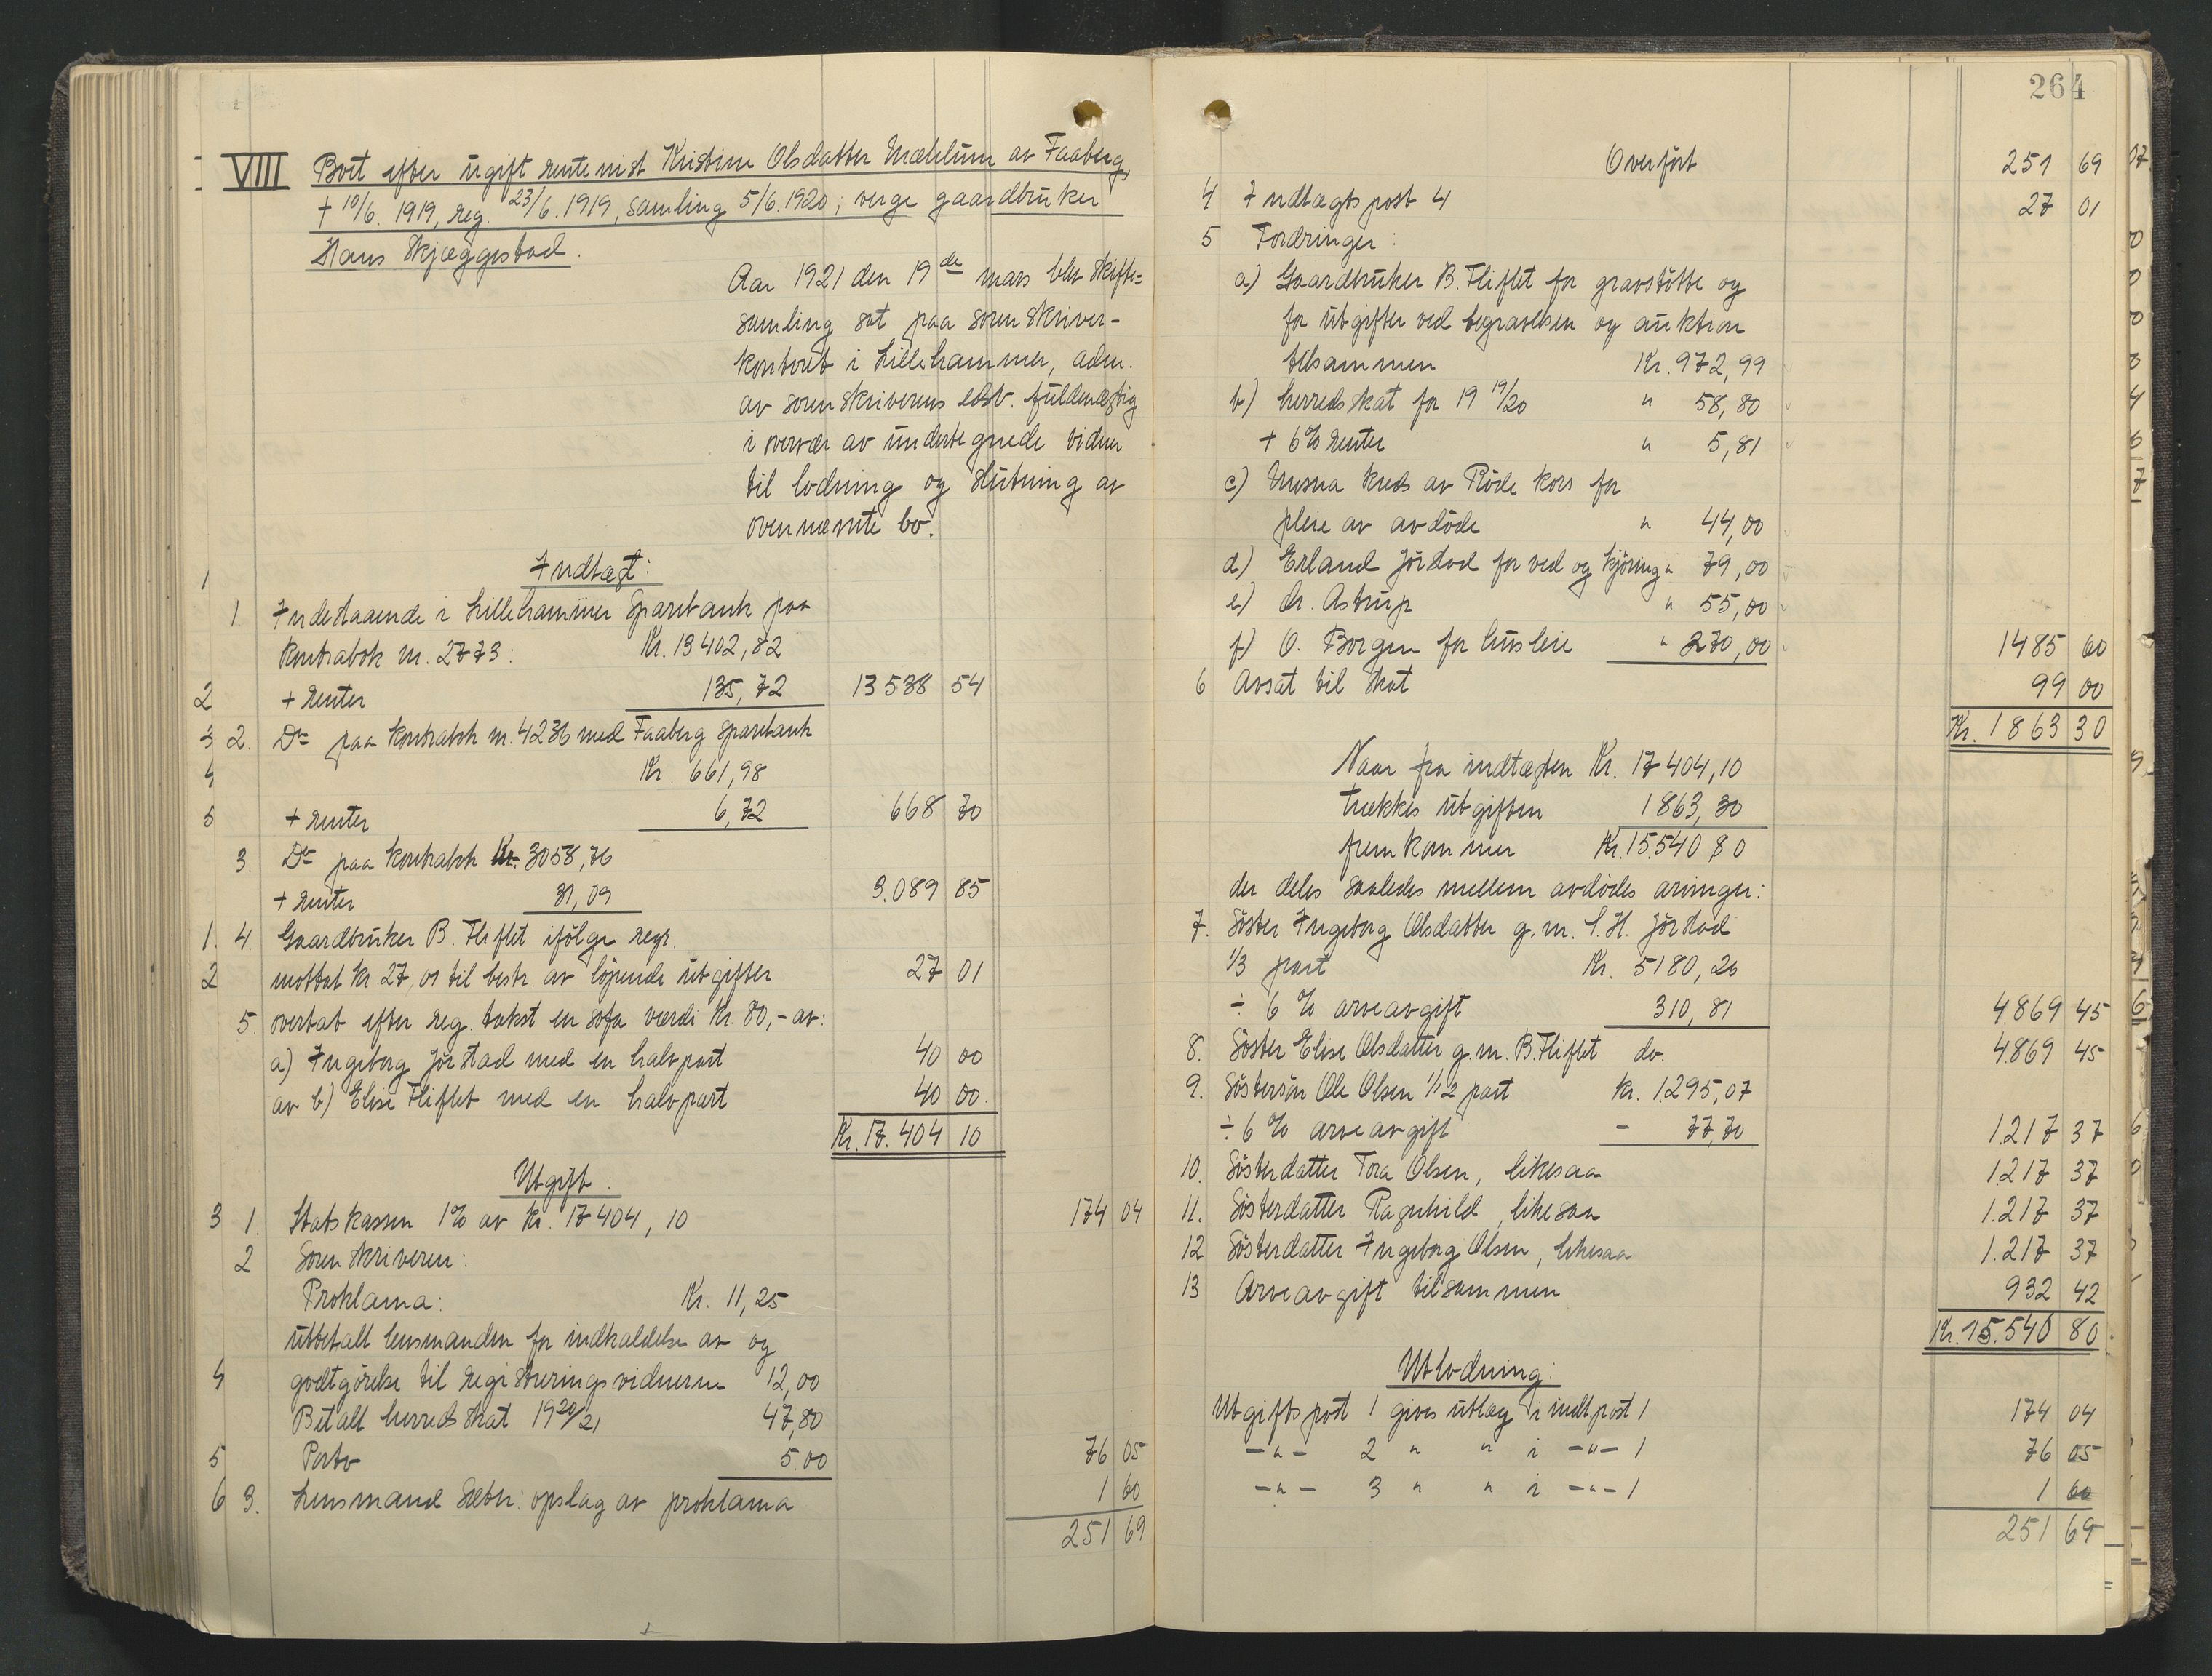 VIII Boet efter ugift rentenist Kristine Olsdatter Mæhlum av Faaberg,
+ 10/6. 1919, reg. 23/6. 1919, samling 5/6. 1920; verge gaardbruker
Hans Skjæggestad.
Aar 1921 den 19de mars blev skifte=
samling sat paa sorenskriver-
kontoret i Lillehammer, adm.
av sorenskriverens edsv. fuldmægtig
i overvær av undertegnede vidner
til lodning og slutning av
ovennævnte bo.
1 Indtægt:
1. Indestaaende i Lillehammer Sparebank paa
kontrabok nr. 2773: Kr. 13402,82
2 + renter 135,72 13538 54
3 2. Do paa kontrabok nr. 4236 med Faaberg sparebank
4 Kr. 661,98
5 + renter 6,72 668 70
3. Do paa kontrabok Kr. 3058,76
+ renter 31,09 3.089 85
1. 4. Gaardbruker B. Fliflet ifølge regr.
2 mottat kr. 27,01 til bestr. av løpende utgifter 27 01
5. overtat efter reg. takst en sofa værdi kr. 80,- av:
a) Ingeborg Jørstad med en halvpart 40 00
av b) Elise Fliflet med en halvpart 40 00.
Kr. 17.404 10
Utgift:
3 1. Statskassen 1% av kr. 17404,10 174 04
2 Sorenskriveren:
Proklama: Kr. 11,25
utbetalt lensmanden for indkaldelse av og
4 godtgørelse til registreringsvidnerne 12,00
Betalt herredskat 1920/21 47,80
5 Porto 5.00 76 05
6 3. Lensmand Sæbn: opslag av proklama 1 60
251 69
264
Overført 251 69
4 Indtægtspost 4 27 01
5 Fordringer:
a) Gaardbruker B. Fliflet for gravstøtte og
for utgifter ved begravelsen og auktion
tilsammen Kr. 972,99
b) herredskat for 19 19/20 " 58,80
+ 6% renter " 5,81
c) Mesna kreds av Røde kors for
pleie av avdøde " 44,00
d) Erland Jørstad for ved og kjøring " 79,00
e) dr. Astrup " 55,00
f) O. Borgen for husleie " 270,00 1485 60
6 Avsat til skat 99 00
Kr. 1863 30
Naar fra indtægten Kr. 17404,10
trækkes utgiften 1863,30
fremkommer Kr. 15540,80
der deles saaledes mellem avdødes arvinger:
7. Søster Ingeborg Olsdatter g.m. S.H. Jørstad
1/3 part Kr. 5180,26
÷ 6% arveavgift 310,81 4.869 45
8. Søster Elise Olsdatter g.m. B. Fliflet do. 4.869 45
9. Søstersøn Ole Olsen 1/12 part kr. 1.295,07
÷ 6% arveavgift - 77,70 1.217 37
10. Søsterdatter Tora Olsen, likesaa 1.217 37
11. Søsterdatter Ragnhild, likesaa 1.217 37
12 Søsterdatter Ingeborg Olsen, likesaa 1.217 37
13 Arveavgift tilsammen 932 42
Kr. 15.540 80
Utlodning:
Utgiftspost 1 gives utlæg i indt.post 1 174 04
-"- 2 " " i -"- 1 76 05
-"- 3 " " i -"- 1 1 60
251 69